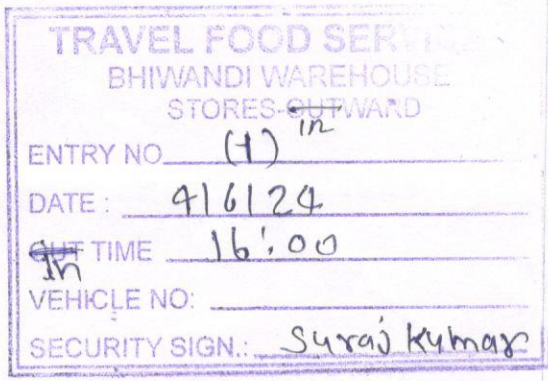 TRAVEL FOOD SERVICE
BHIWANDI WAREHOUSE
STORES-OUTWARD in
ENTRY NO (1)
DATE : 4/6/24
OUT TIME 16:00
In
VEHICLE NO:
SECURITY SIGN.: Suraj Kumar